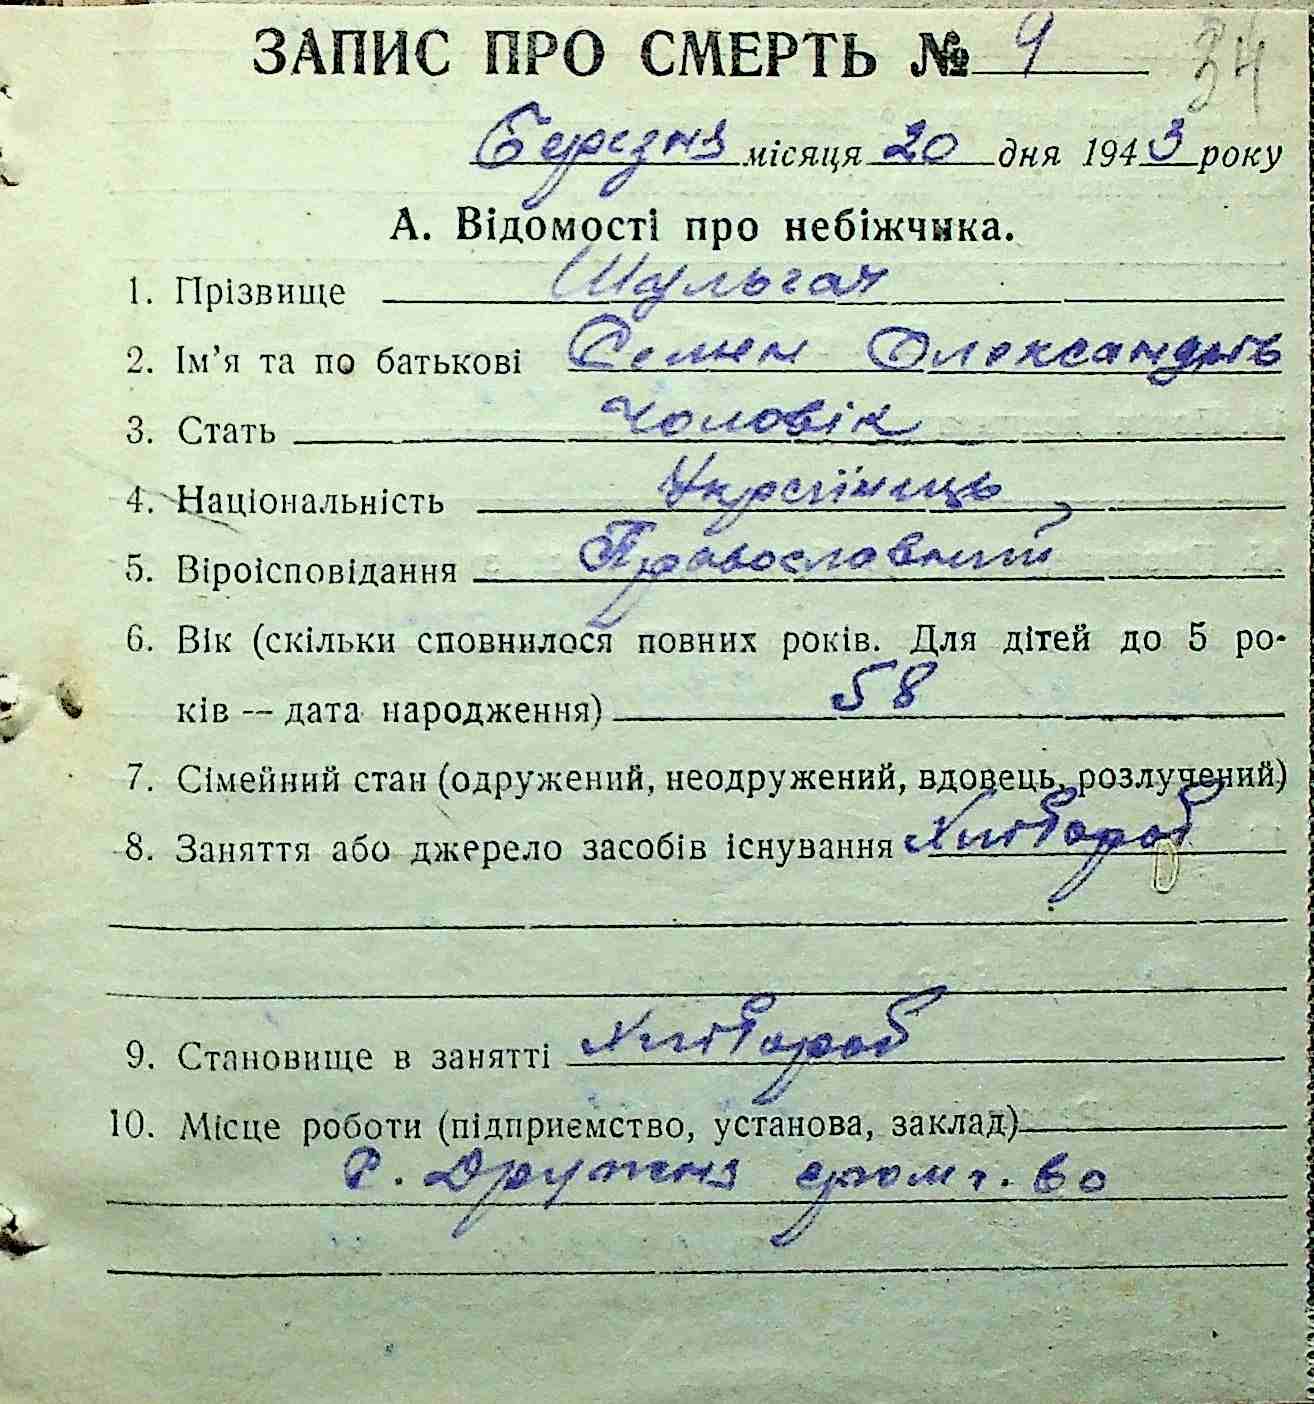 ЗАПИС ПРО СМЕРТЬ № 9 34
Березня місяця 20 дня 1943 року
А. Відомості про небіжчика.
1. Прізвище Шульгач
2. Ім’я та по батькові Семен Олександрів
3. Стать Чоловік
4. Національність Українець
5. Віроісповідання Православний
6. Вік (скільки сповнилося повних років. Для дітей до 5 ро-
ків -- дата народження) 58
7. Сімейний стан (одружений, неодружений, вдовець, розлучений)
8. Заняття або джерело засобів існування Хлібороб
9. Становище в занятті Хлібороб
10. Місце роботи (підприємство, установа, заклад)
с. Дружня